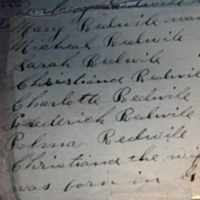 Mary Redwile
Micheal Redwile
Sarah Redwile
Christiana Redwile
Charlotte Redwile
Frederick Redwile
Redwile
Christiana the
was born in